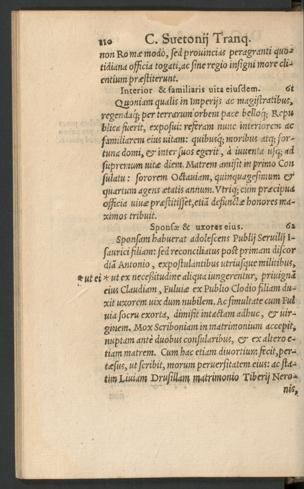 210 C. Suetonij Tranq.
non Romæ modò, sed prouincias peragranti quo-
tidiana officia togati, ac sine regio insigni more cli-
entium præstiterunt.
Interior & familiaris uita eiusdem. 61
Quoniam qualis in Imperijs ac magistratibus,
regendaq́; per terrarum orbem pace belloq́; Repu
blica fuerit, exposui: referam nunc interiorem ac
familiarem eius uitam: quibusq́; moribus atq; for-
tuna domi, & inter suos egerit, à iuuenta usq; ad
supremum uitæ diem. Matrem amisit in primo Con
sulatu: sororem Octauiam, quinquagesimum &
quartum agens ætatis annum. Vtriq; cum præcipua
officia uiuæ præstitisset, etiã defunctæ honores ma-
ximos tribuit.
Sponsæ & uxores eius. 62
Sponsam habuerat adolescens Publij Seruilij I-
saurici filiam: sed reconciliatus post primam discor
diã Antonio, expostulantibus utriusque militibus,
*ut ei * ut ex necessitudine aliqua iungerentur, priuignã
eius Claudiam, Fuluiæ ex Publio Clodio filiam du-
xit uxorem uix dum nubilem. Ac simultate cum Ful
uia socru exorta, dimisit intactam adhuc, & uir-
ginem. Mox Scriboniam in matrimonium accepit,
nuptam antè duobus consularibus, & ex altero e-
tiam matrem. Cum hac etiam diuortium fecit, per-
tæsus, ut scribit, morum peruersitatem eius: ac sta-
tim Liuiam Drusillam matrimonio Tiberij Nero-
nis,